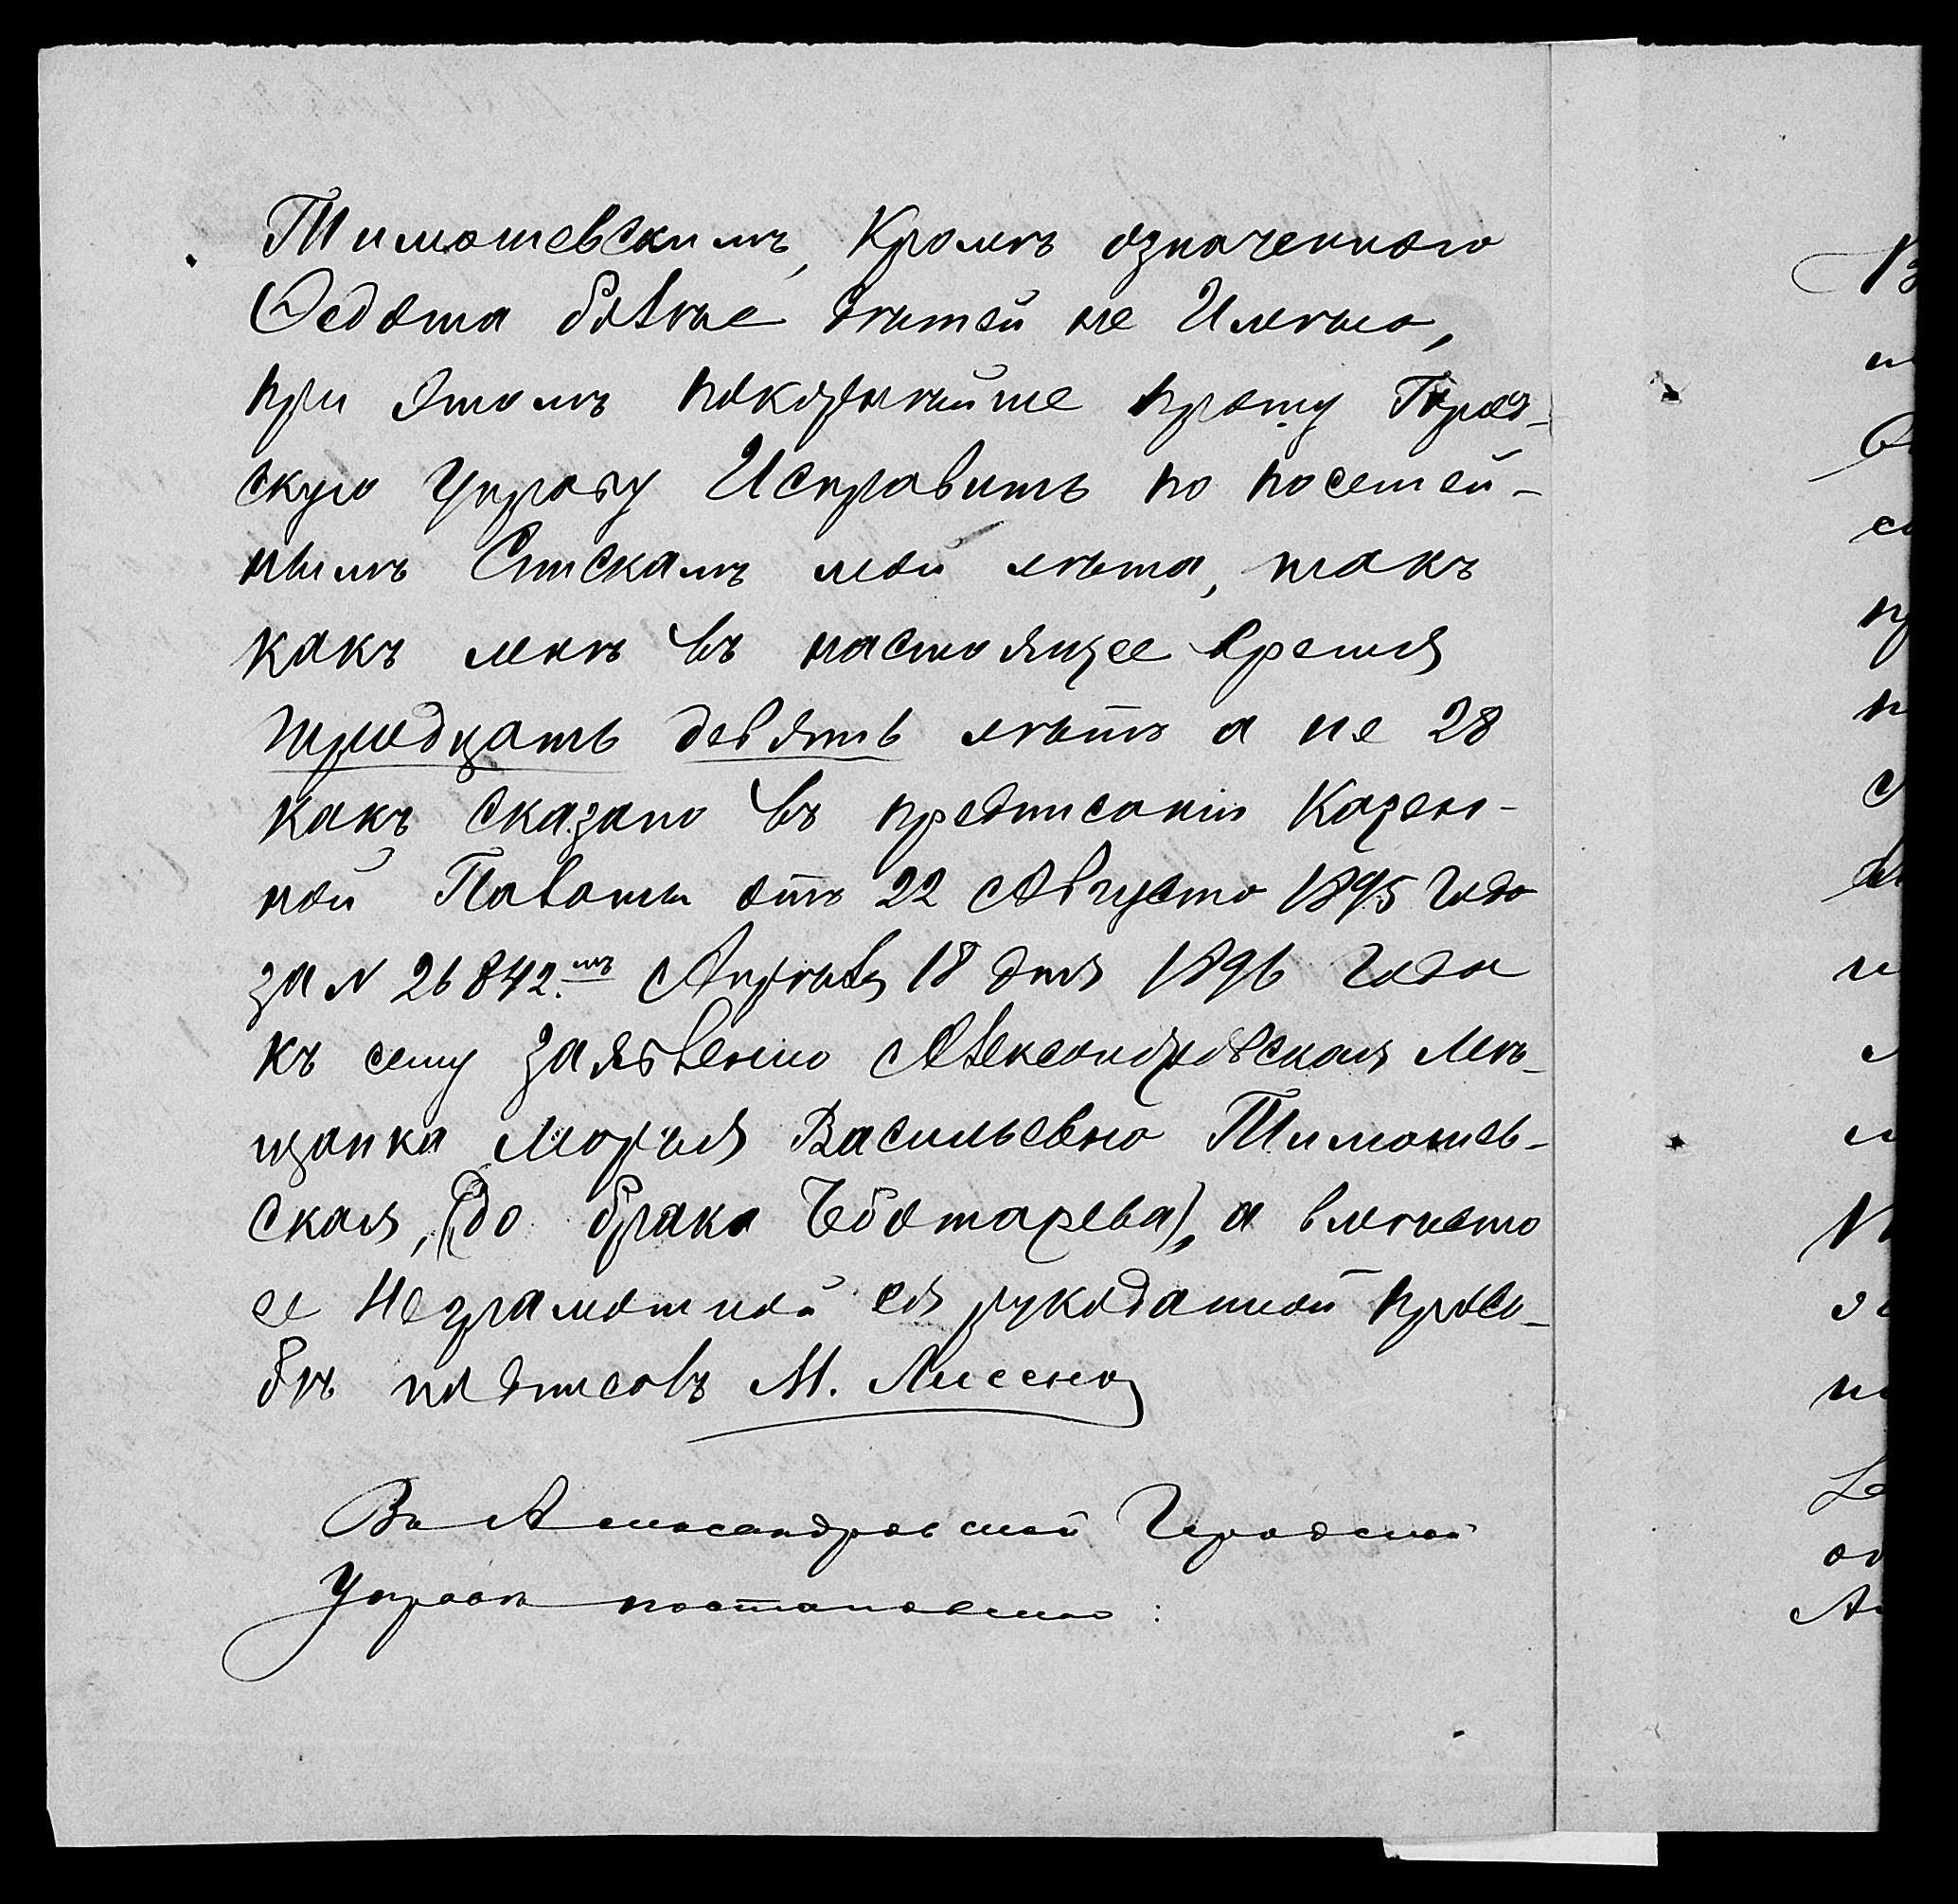 Тимошевскимъ, Кромѣ означеннаго
Ѳедота болѣе дѣтей не Имѣю,
при Этомъ покорнѣйше прошу Город-
скую Управу Исправить по посемей-
нымъ Спискамъ мои лѣта, такъ
какъ мнѣ въ настоящее время
тридцать девять лѣтъ а не 28
какъ сказано въ предписаніи Казен-
ной Палаты отъ 22 Августа 1895 года
за N 26842.мъ Апрѣля 18 дня 1896 года
къ сему заявленію Александровская Мѣ-
щанка Марья Васильевна Тимошев-
ская, (до брака Чеботарева), а вмѣсто
ее Неграмотной ея рукоданной прось-
бѣ подписалъ М. Лисенко
Въ Александровской Городской
Управѣ постановлено: